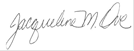 Jacqueline M. Doe